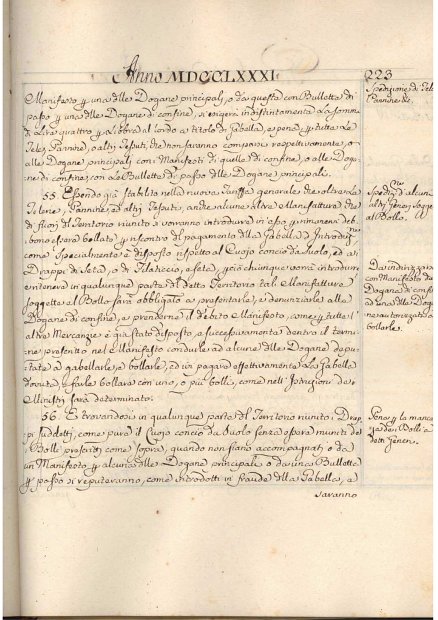 Anno MDCCLXXXI.
223
Manifesto p una dlle Dogane principalj, o da questa con Bullette di
passo p una dlle Dogane di confine, si esigerà indistintamente la somma
di Lire quattro p libbra al lordo a titolo di Gabella, e pena, p tutte le
Tele, Pannine, o altri Tessuti, che non saranno comparse respettivamente, o
alle Dogane principali con Manifesti di quelle di confine, o alle Doga-
ne di confine, con le Bullette di passo dlle Dogane principali.
55. Essendo già stabilito nella nuova Tariffa generale che oltre le
Telerie, Pannine, ed altri Tessuti, anche alcune altre Manifatture che
di fuori del Territorio riunito si vorranno introdurre in esso p rimanervi deb-
bono essere bollate p riscontro del pagamento dlla Gabella d'Introduz.ne
come specialmente è disposto rispetto al Cuojo concio da Suolo, ed ai
Drappi di Seta, o di Filaticcio, e Seta, perciò chiunque vorrà introdurre
e ritenere in qualunque parte del detto Territorio tali Manifatture
soggette al Bollo sarà obbligato a presentarle, e denunziarle alle
Dogane di confine, e prenderne il debito Manifesto, come p tutte l'
altre Mercanzie è già stato disposto, e successivamente dentro il termi-
ne prescritto nel Manifesto condurle ad alcune dlle Dogane depu-
tate a gabellarle, e bollarle, ed ivi pagare effettivamente la Gabella
dovuta, e farle bollare con uno, o più bolli, come nell'Istruzioni de'
Ministri sarà determinato.
56. E trovandosi in qualunque parte del Territorio riunito i Drap-
pi suddetti, come pure il Cuojo concio da Suolo senza essere muniti de'
Bolli prescritti come sopra, quando non siano accompagnati, o da
un Manifesto p alcuna dlle Dogane principali, o da una Bulletta
p passo si reputeranno, come introdotti in fraude dlla Gabella, e
saranno
Spedizione di Tele
Pannine &c.
Spediz.ne di alcuni
altri generi soggetti
al Bollo.
Da indirizzarsi
con Manifesto dlle
Dogane di confine
ad una dlle Doga-
ne autorizzate a
bollarle.
Pena p la mancan-
za dei Bolli a
detti Generi.